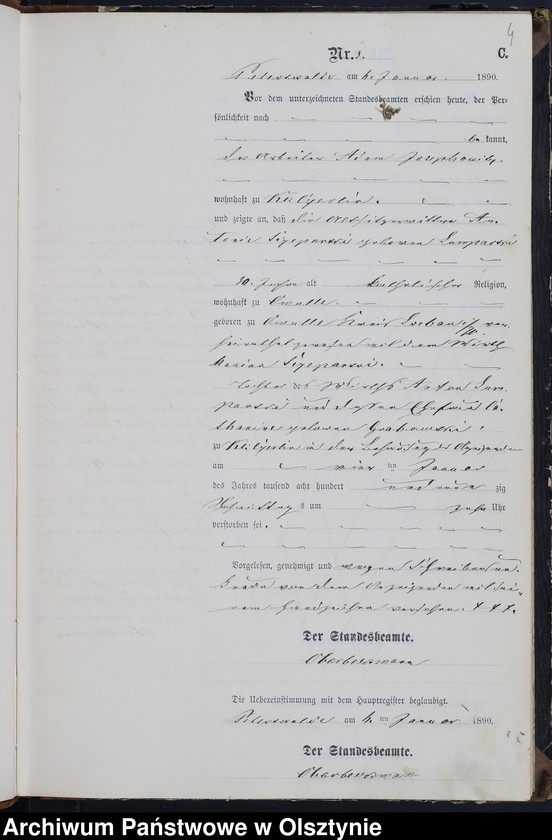 4
Nr. 1. C.
Peterswalde am 4. Januar 1890.
Vor dem unterzeichneten Standesbeamten erschien heute, der Per-
sönlichkeit nach
be kannt,
der Arbeiter Adam Josephowitz.
wohnhaft zu
und zeigte an, daß die Altsitzerwittwe An-
tonie geborene
80. Jahre alt katholischer Religion,
wohnhaft zu
geboren zu Kreis Loebau ver-
heirathet gewesen mit dem Wirth
Marian
Tochter des Wirths Anton
und dessen Ehefrau Ca-
tharine geborenen Grabowski
zu in der Behausung des Anzeigenden
am vier ten Januar
des Jahres tausend acht hundert und neun zig
Vormittags um zehn Uhr
verstorben sei.
Vorgelesen, genehmigt und wegen Schreibensun-
kunde von dem Anzeigenden mit sei-
nem Handzeichen versehen. † † †.
Der Standesbeamte.
Die Uebereinstimmung mit dem Hauptregister beglaubigt.
Peterswalde am 4. ten Januar 1890.
Der Standesbeamte.
Archiwum Państwowe w Olsztynie